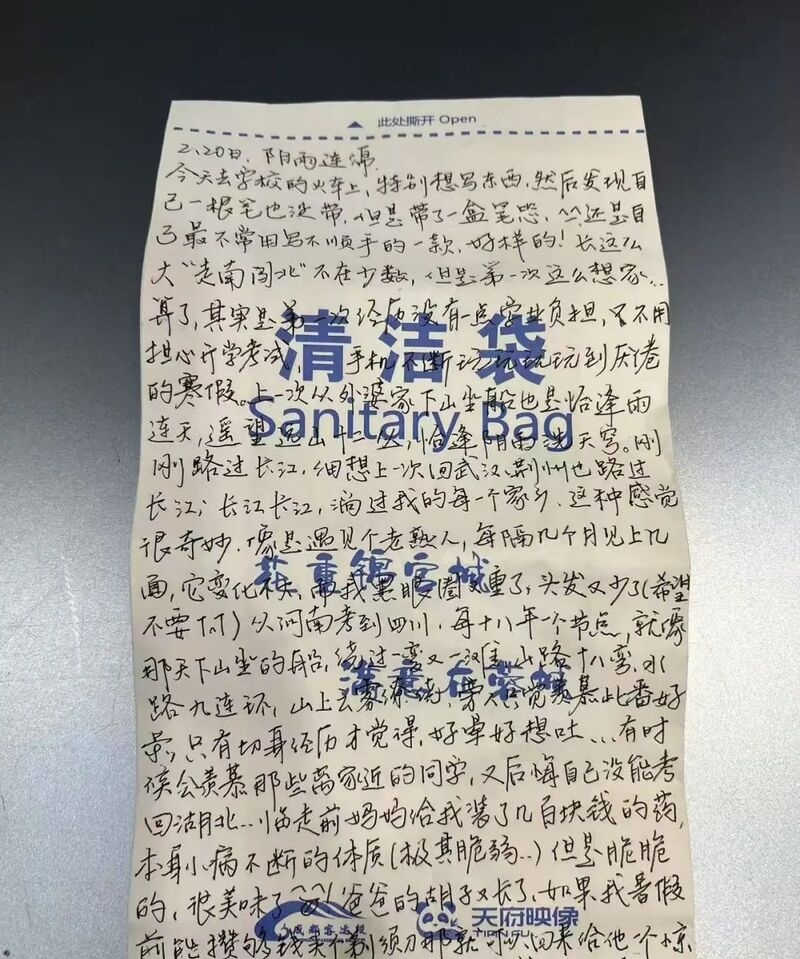 此处撕开 Open
2.20日. 阴雨连绵.
今天去学校的火车上, 特别想写东西, 然后发现自
己一根笔也没带, 但是带了一盒笔芯, ^^还是自
己最不常用写不顺手的一款, 好样的! 长这么
大“走南闯北”不在少数, 但是第一次这么想家..
算了, 其实是第一次经历没有一点学业负担, 又不用
担心开学考试, 手机不断玩玩玩玩到厌倦
的寒假。上一次从外婆家下山坐船也是恰逢雨
连天, 遥望远山十二次, 恰逢阴雨连天穹。刚
刚路过长江, 细想上一次回武汉荆州也路过
长江; 长江长江, 淌过我的每一个家乡. 这种感觉
很奇妙. 像是遇见个老熟人, 每隔几个月见上几
面, 它变化不大, 而我黑眼圈又重了, 头发又少了(希望
不要TAT) 从河南考到四川, 每十八年一个节点, 就像
那天下山坐的船, 绕过一弯又一滩, 山路十八弯, 水
路九连环, 山上云雾缭绕, 旁人只觉羡慕此番好
景, 只有切身经历才觉得, 好晕好想吐... 有时
候会羡慕那些离家近的同学, 又后悔自己没能考
回湖北... 临走前妈妈给我装了几百块钱的药,
本身小病不断的体质(极其脆弱..) 但是脆脆
的, 很美味了^^! 爸爸的胡子又长了, 如果我暑假
前能攒够钱买个剃须刀那就可以回来给他一个惊
清洁袋
Sanitary Bag
花重锦官城
满意在蓉城
成都客运段
天府映像
TIANFU